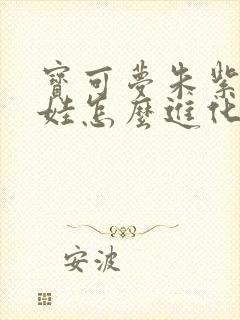 寶可夢朱紫
娃怎麼進化
安波